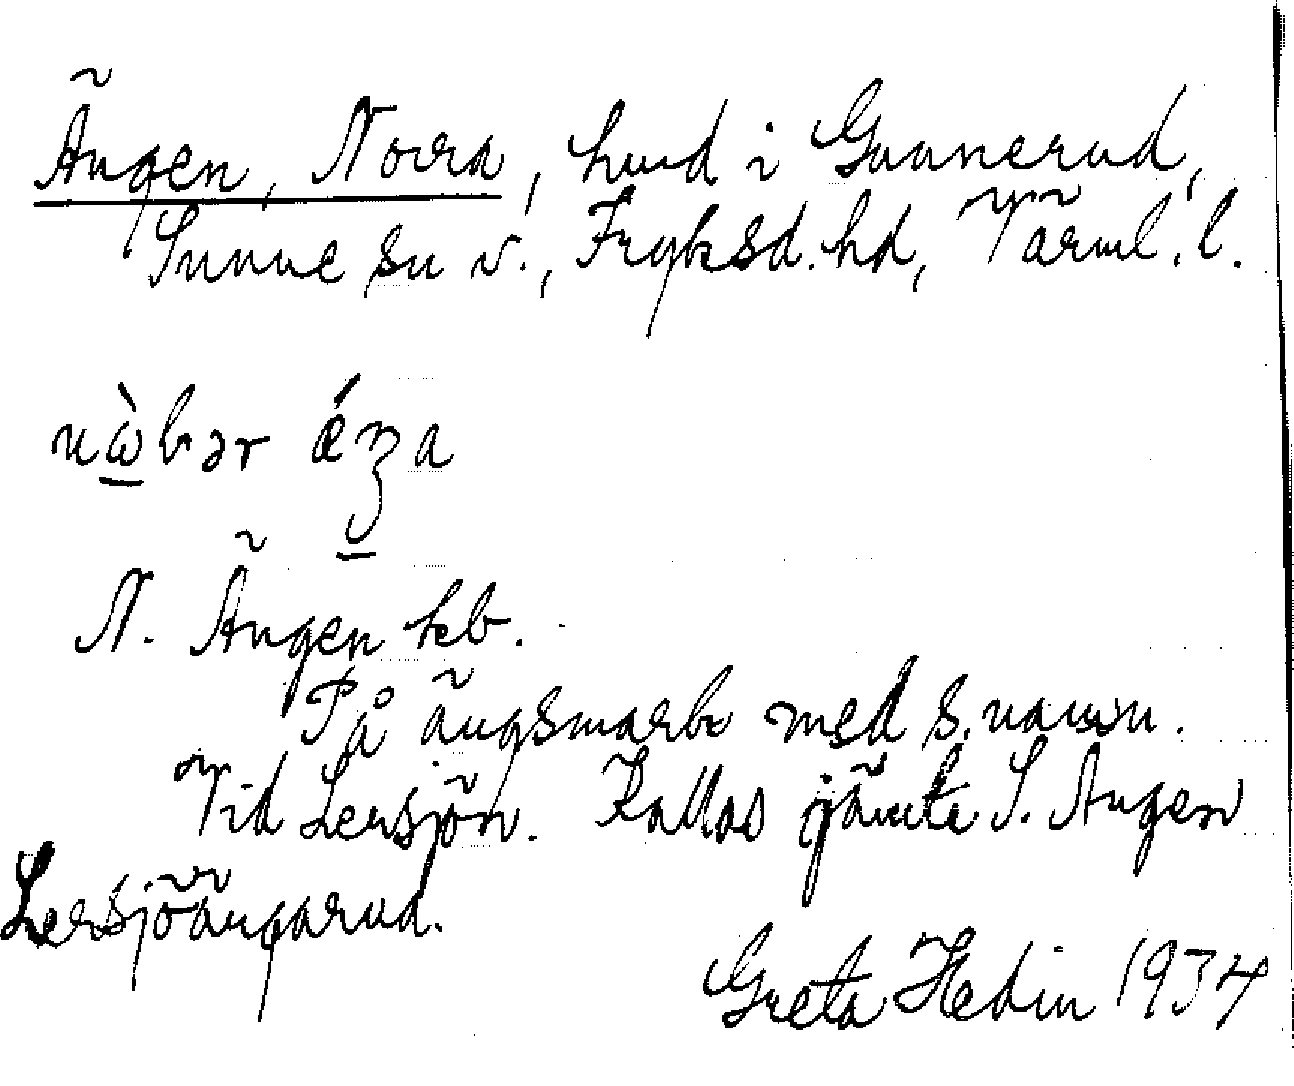 Ängen, Norra, hmd i Gunnerud,
Sunne sn v., Fryksd. hd, Värml. l.
nὼbər ǽŋa
N. Ängen hb.
På ängsmark med s. namn.
Vid Lersjön. Kallas jämte S. Ängen
Lersjöängarna.
Greta Hedin 1934